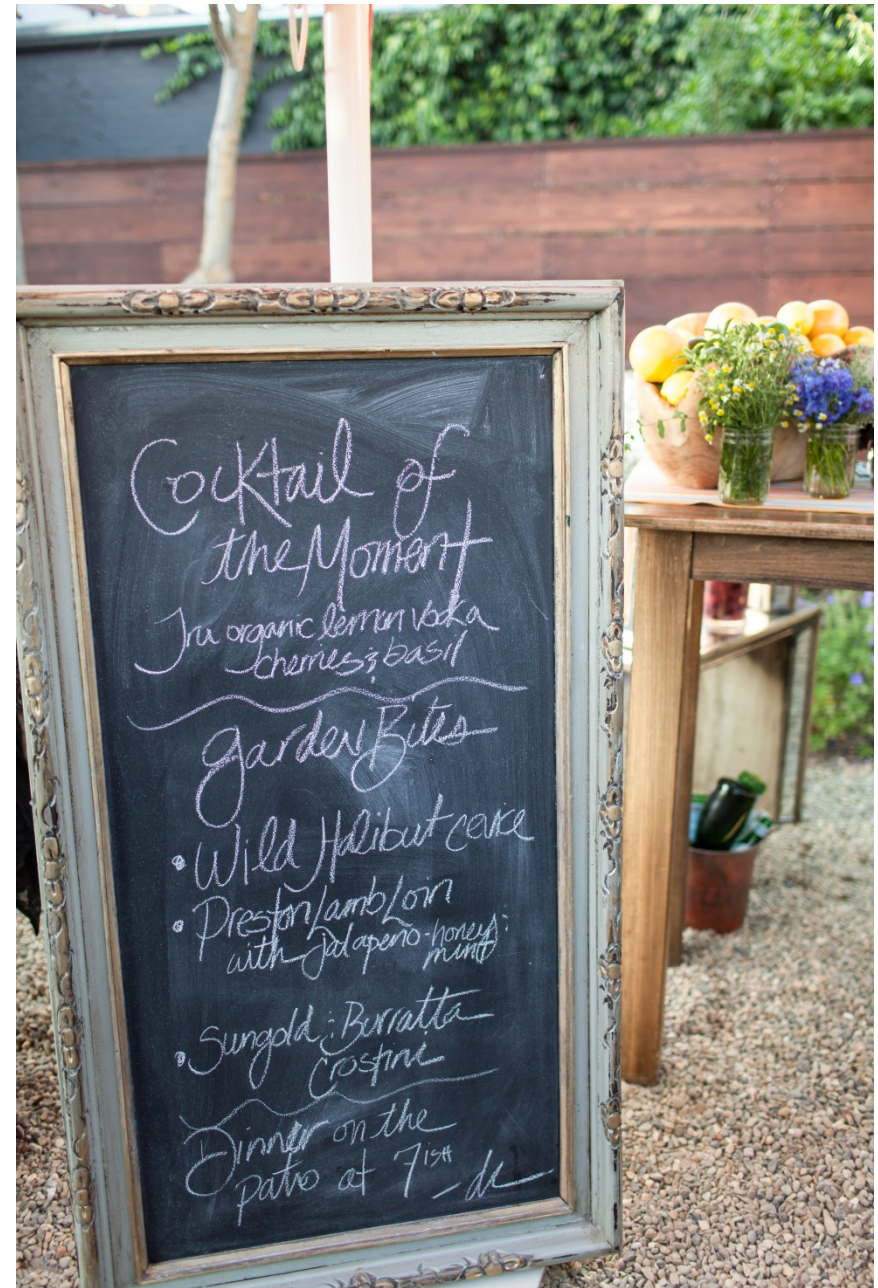 Cocktail of
the Moment
Tru organic lemon vodka
cherries & basil
Garden Bites
• Wild Halibut cevice
• Preston Lamb Loin
with Jalapeño-honey &
mint
• Sungold & Burratta
Crostini
Dinner on the
patio at 7ish